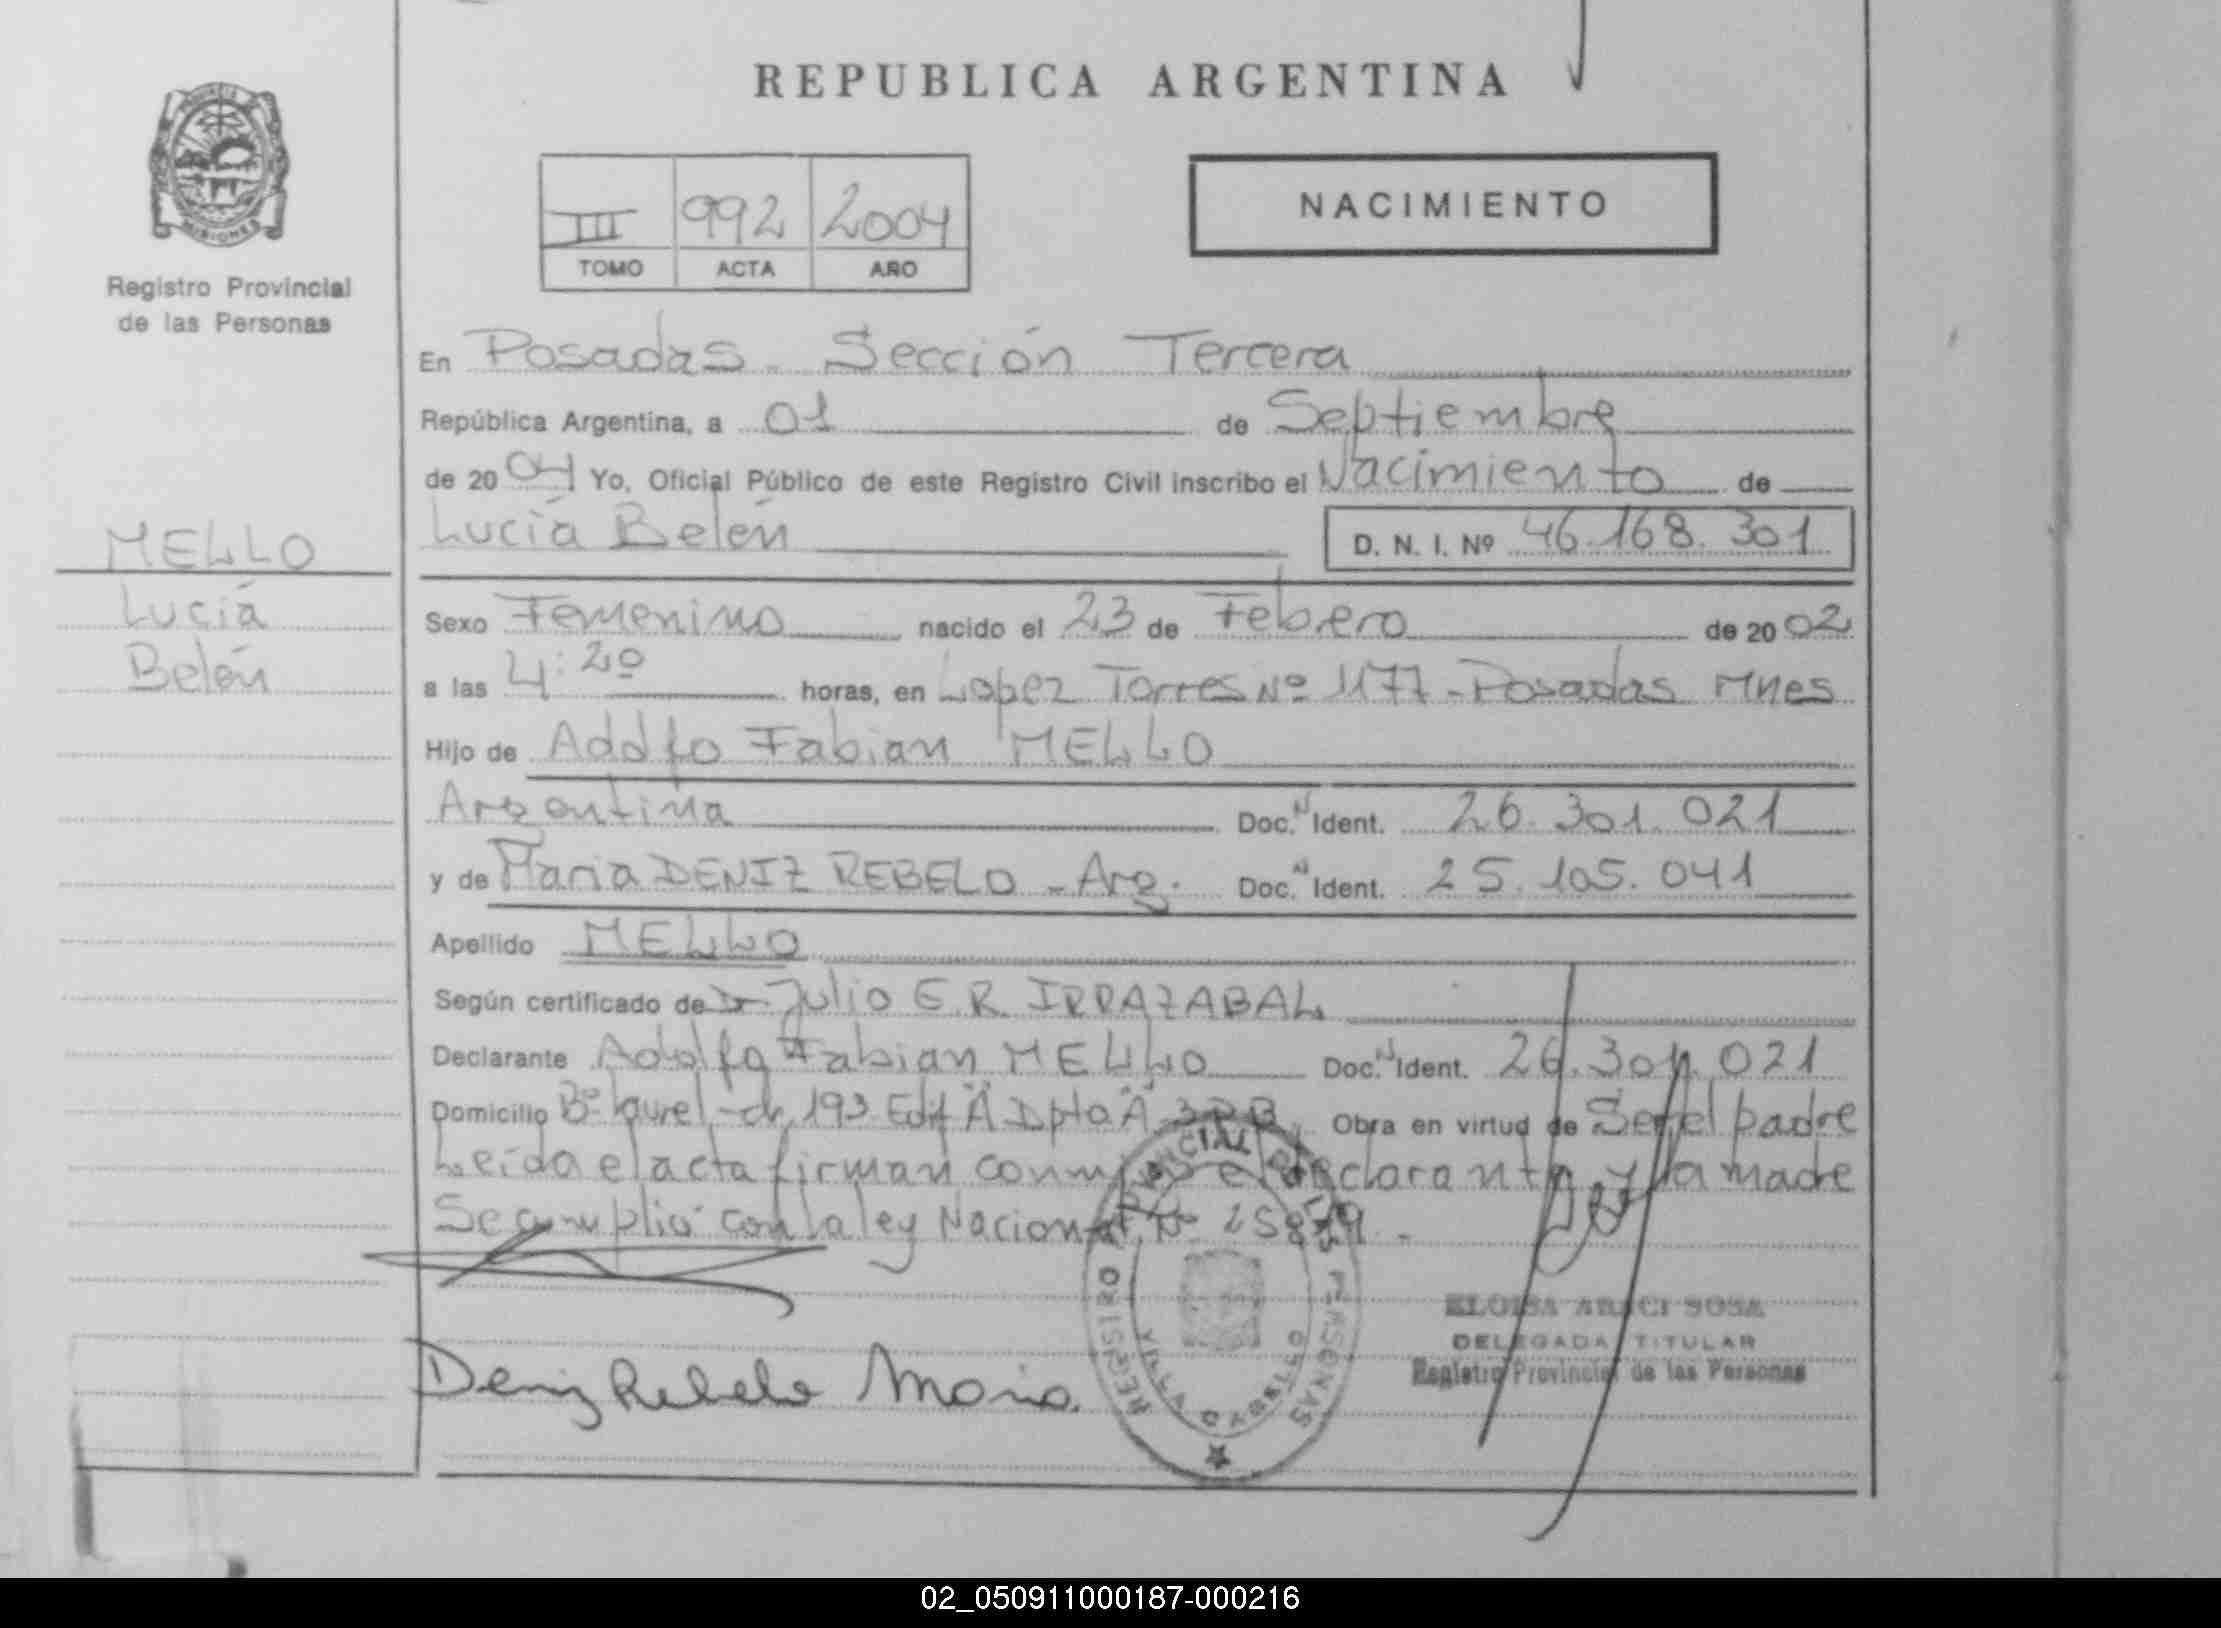 REPUBLICA ARGENTINA
PROVINCIA DE MISIONES
Registro Provincial
de las Personas
III 992 2004
TOMO ACTA AÑO
NACIMIENTO
En Posadas - Sección Tercera
República Argentina, a 01 de Septiembre
de 2004 Yo, Oficial Público de este Registro Civil inscribo el Nacimiento de
Lucía Belén D. N. I. Nº 46.168.301
MELLO
Lucía
Belén
Sexo Femenino nacido el 23 de Febrero de 2002
a las 4:20 horas, en Lopez Torres Nº 1177 - Posadas Mnes
Hijo de Adolfo Fabian MELLO
Argentina Doc. N Ident. 26.301.021
y de Maria DENIZ REBELO - Arg. Doc. N Ident. 25.105.041
Apellido MELLO
Según certificado de Dr. Julio E.R. IRRAZABAL
Declarante Adolfo Fabian MELLO Doc. N Ident. 26.301.021
Domicilio Bº laurel - ch 193 Edif "A" Dpto "A" Obra en virtud de Ser el padre
Leída el acta firman conmigo el declarante y la madre
Se cumplió con la ley Nacional Nº
REGISTRO PROVINCIAL DE LAS PERSONAS
VILLA CABELLO
ELOISA ARACI SOSA
DELEGADA TITULAR
Registro Provincial de las Personas
Deniz Rebelo Maria.
02_050911000187-000216